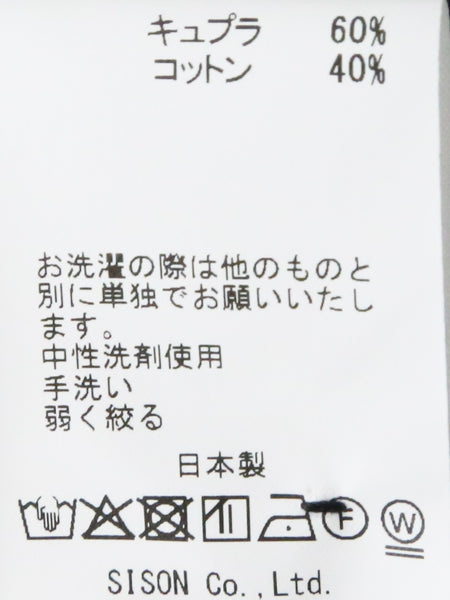 キュプラ 60%
コットン 40%
お洗濯の際は他のものと
別に単独でお願いいたし
ます。
中性洗剤使用
手洗い
弱く絞る
日本製
F W
SISON Co.,Ltd.